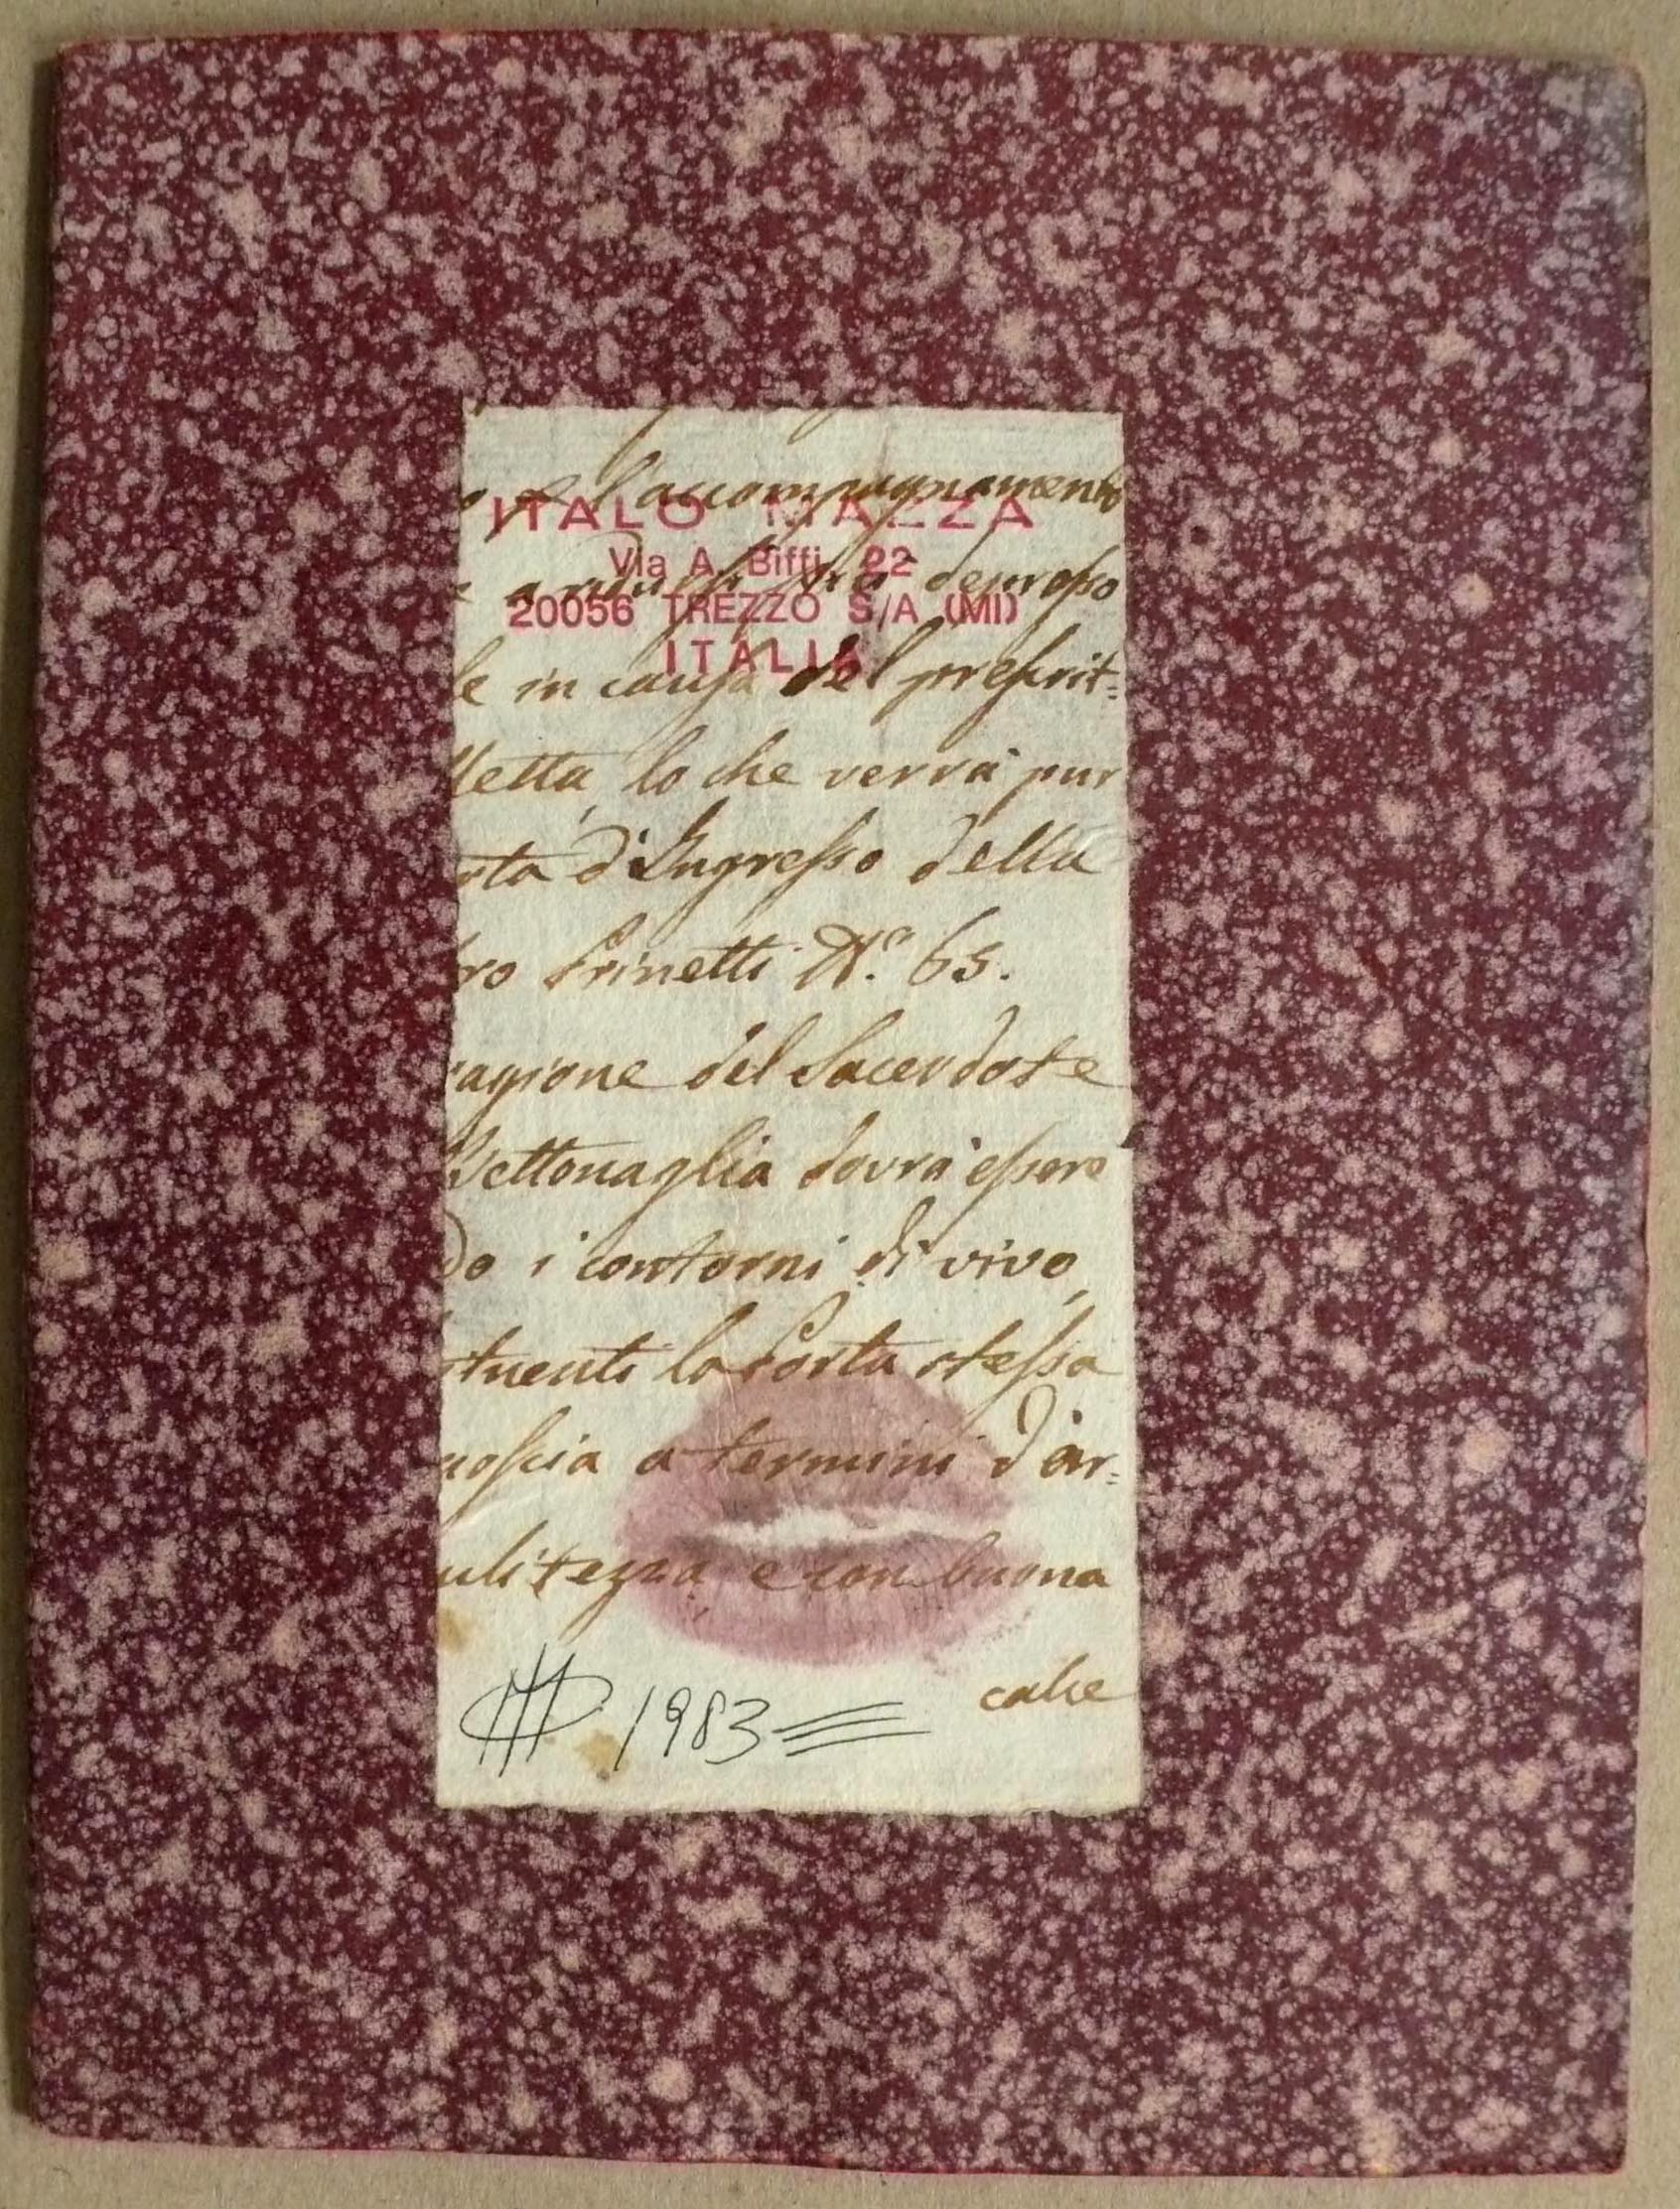 l'accompagnamento
ITALO MAZZA
Via A. Biffi, 22
20056 TREZZO S/A (MI)
ITALIA
le in causa del prescrit=
lletta, lo che verrà pur
rta d'Ingresso della
ro Prinetti N.º 65.
ragione del Sacerdote
Bettonaglia dovrà essere
do i contorni di vivo,
tuenti la Porta stessa
poscia a termini d'ar=
ulitezza e con buona
calce
1983